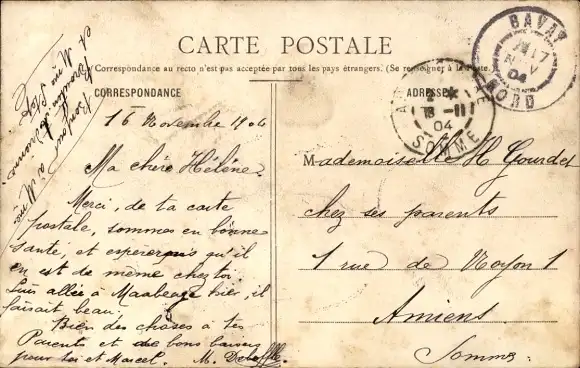 CARTE POSTALE
Correspondance au recto n'est pas acceptée par tous les pays étrangers. (Se renseigner à la poste
CORRESPONDANCE
ADRESSE
BAVAY
17
NOV
04
NORD
18 - 11
04
SOMME
16 Novembre 1904
Ma chère Hélène.
Merci, de ta carte
postale, sommes en bonne
santé, et espérons qu'il
en est de même chez toi
Suis allée à Maubeuge hier, il
faisait beau.
Bien des choses à tes
Parents et de bons baisers
pour toi et Marcel. M.
Mademoiselle H Gourdet
chez ses parents
1 rue de Noyon 1
Amiens
Somme.
Bonjour à Mme